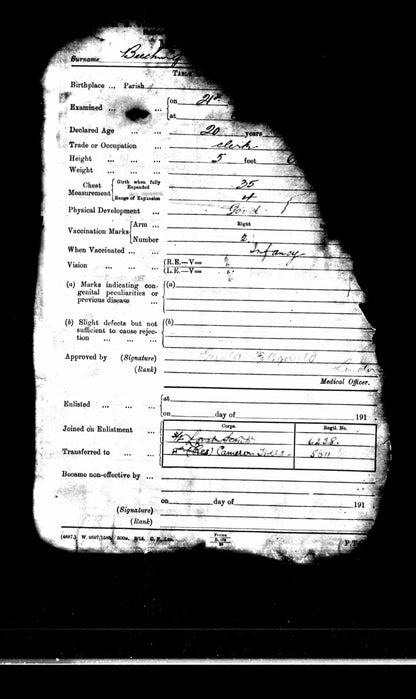 Surname
TABLE
Birthplace ... Parish
Examined ... { on 21st
at
Declared Age ... ... 20 years
Trade or Occupation ... clerk
Height ... ... ... 5 feet 6
Weight ... ... ...
Chest Measurement { Girth when fully Expanded 35
Range of Expansion 4
Physical Development ... Good
Right
Vaccination Marks { Arm ...
Number 2
When Vaccinated ... ... Infancy
Vision ... ... { R.E.—V= 6
L.E.—V= 6
(a) Marks indicating con- { (a)
genital peculiarities or
previous disease ...
(b) Slight defects but not { (b)
sufficient to cause rejec-
tion ... ... ...
Approved by (Signature)
(Rank)
Medical Officer.
Enlisted ... ... ... { at
on day of 191
Corps. Regtl. No.
Joined on Enlistment ... 6238.
Transferred to ... ... (Res) Cameron 5011
Became non-effective by ...
on day of 191
(Signature)
(Rank)